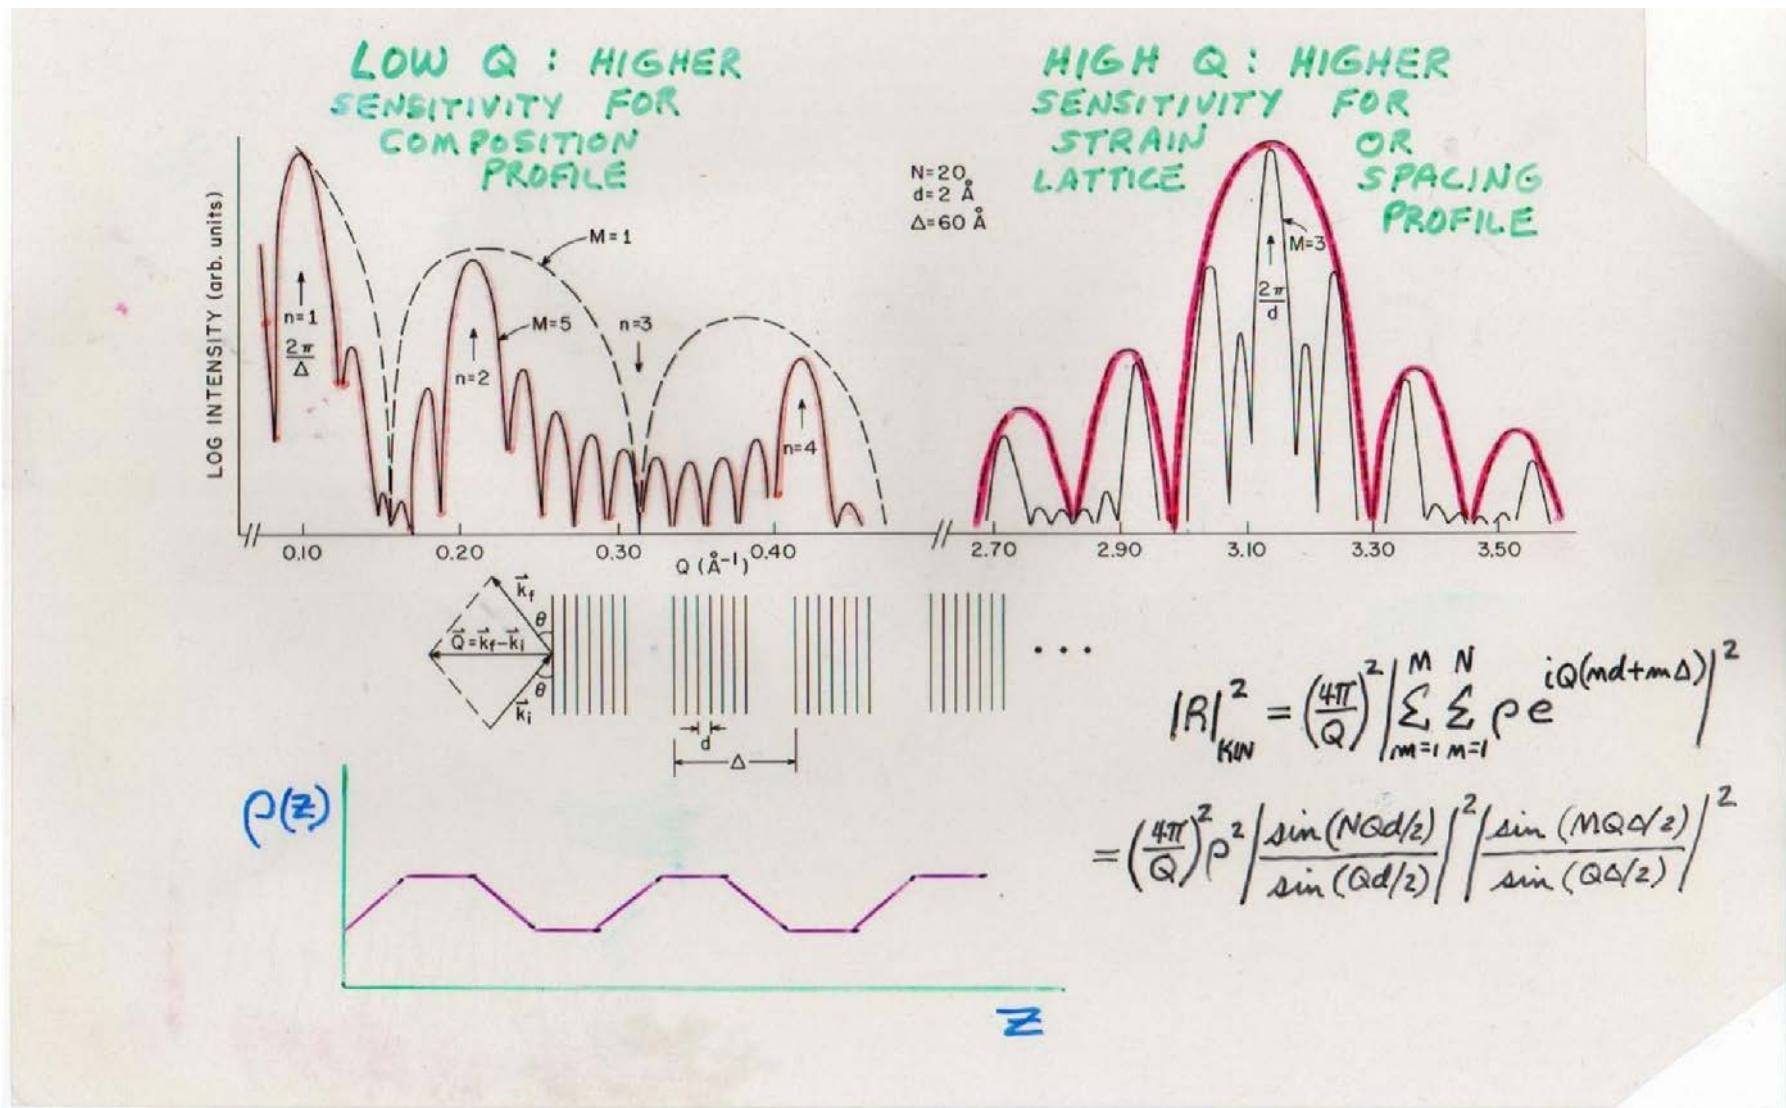 LOW Q : HIGHER
SENSITIVITY FOR
COMPOSITION
PROFILE
HIGH Q : HIGHER
SENSITIVITY FOR
STRAIN OR
LATTICE SPACING
PROFILE
N=20
d=2 Å
Δ=60 Å
LOG INTENSITY (arb. units)
M=1
M=5
M=3
n=1
2π/Δ
n=2
n=3
n=4
2π/d
0.10 0.20 0.30 0.40 2.70 2.90 3.10 3.30 3.50
Q (Å⁻¹)
k⃗f
θ
Q⃗=k⃗f-k⃗i
θ
k⃗i
d
Δ
• • •
|R|²KIN = (4π/Q)² |Σ(m=1)^M Σ(n=1)^N ρe^iQ(nd+mΔ)|²
= (4π/Q)² ρ² |sin(NQd/2)/sin(Qd/2)|² |sin(MQΔ/2)/sin(QΔ/2)|²
ρ(z)
z